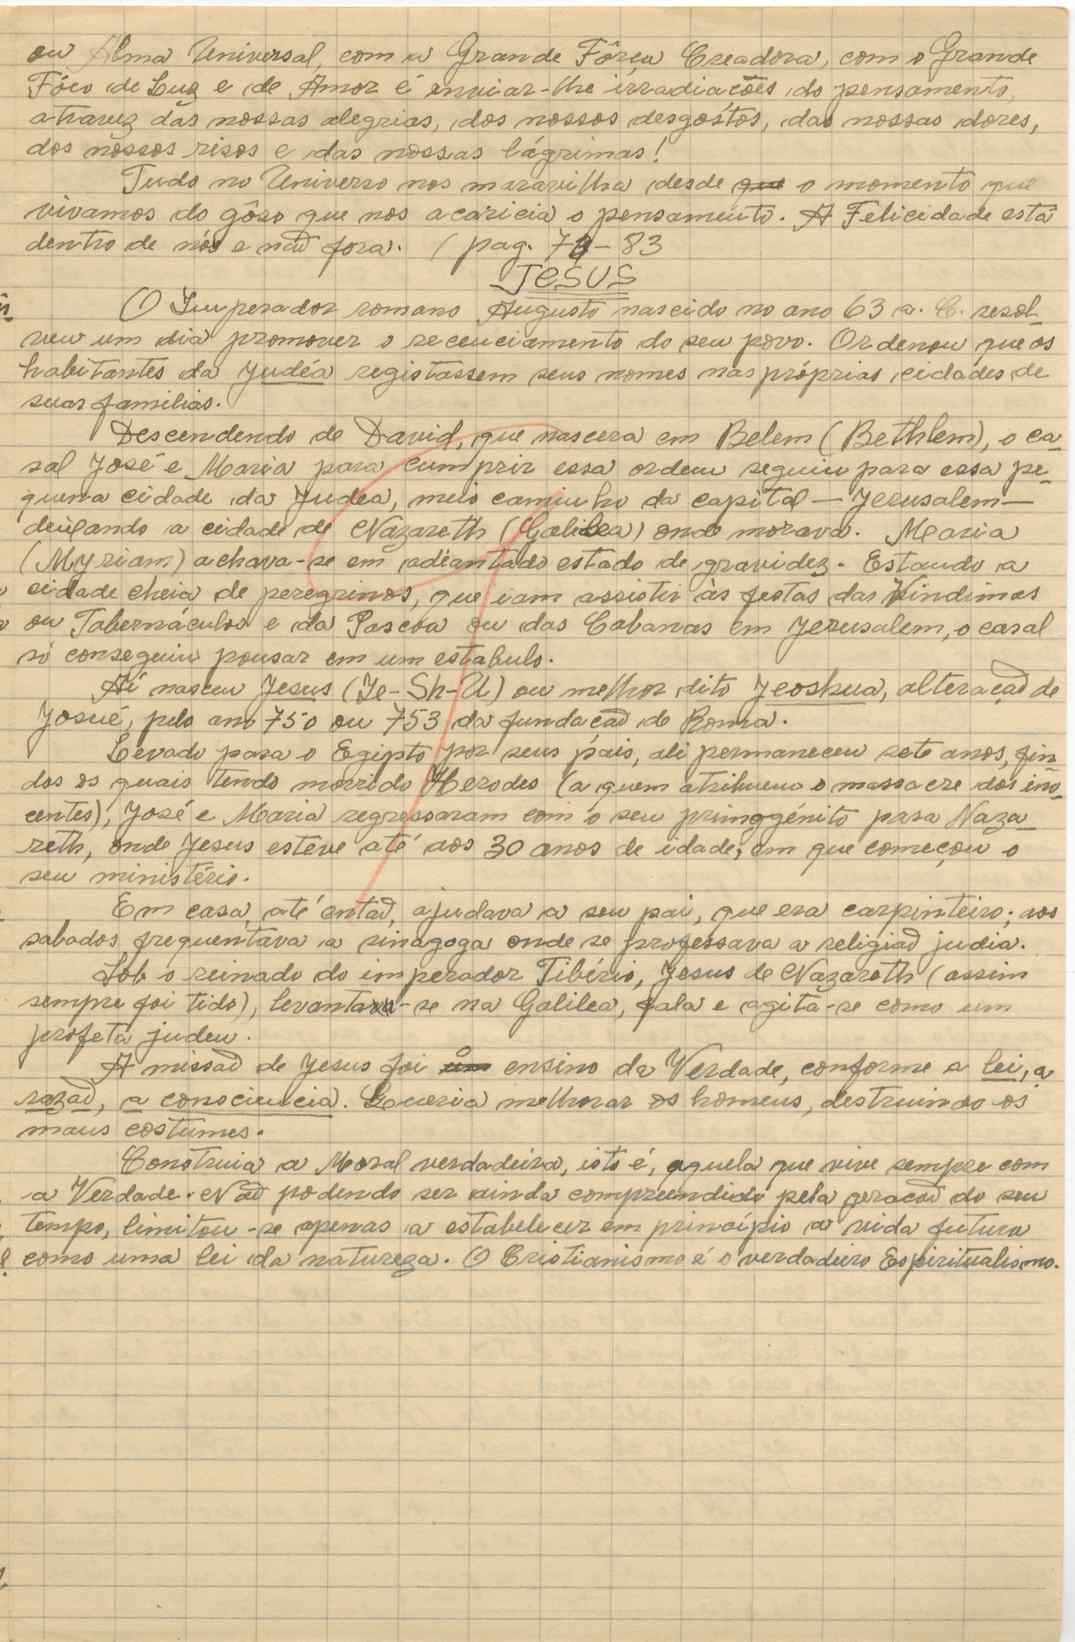 ou Alma Universal, com a Grande Fôrça Creadora, com o Grande
Fóco de Luz e de Amor é enviar-lhe irradiações do pensamento,
atravez das nossas alegrias, dos nossos desgóstos, das nossas dores,
dos nossos risos e das nossas lágrimas!
Tudo no Universo nos maravilha desde que o momento que
vivamos do gôso que nos acaricia o pensamento. A Felicidade está
dentro de nós e não fora. (pag. 71-83
JESUS
O Imperador romano Augusto nascido no ano 63 a. C. resol-
veu um dia promover o recenciamento do seu povo. Ordenou que os
habitantes da Judéa registassem seus nomes nas próprias cidades de
suas familias.
Descendendo de David, que nascera em Belem (Bethlem), o ca-
sal José e Maria para cumprir essa ordem seguiu para essa pe-
quena cidade da Judéa, meio caminho da capital — Jerusalem —
deixando a cidade de Nazareth (Galilea) onde morava. Maria
(Myriam) achava-se em adeantado estado de gravidez. Estando a
cidade cheia de peregrinos, que iam assistir às festas das Vindimas
ou Tabernáculos e da Pascoa ou das Cabanas em Jerusalem, o casal
só conseguiu pousar em um estabulo.
Aí nasceu Jesus (Je-Sh-U) ou melhor dito Jeoshua, alteração de
Josué, pelo ano 750 ou 753 da fundação de Roma.
Levado para o Egipto por seus pais, ali permaneceu sete anos, fin-
dos os quais tendo morrido Herodes (a quem atribuem o massacre dos ino-
centes), José e Maria regressaram com o seu primogénito para Naza-
reth, onde Jesus estève até aos 30 anos de idade, em que começou o
seu ministério.
Em casa, até então, ajudava a seu pai, que era carpinteiro; aos
sabados frequentava a sinagoga onde se professava a religião judia.
Sob o reinado do imperador Tibério, Jesus de Nazareth (assim
sempre foi tido), levanta-se na Galilea, fala e agita-se como um
profeta judeu.
A missão de Jesus foi um o ensino da Verdade, conforme a lei, a
razão, a consciencia. Queria melhorar os homens, destruindo os
maus costumes.
Construia a Moral verdadeira, isto é, aquela que vive sempre com
a Verdade. Não podendo ser ainda compreendido pela geração do seu
tempo, limitou-se apenas a estabelecer em princípio a vida futura
como uma lei da natureza. O Cristianismo é o verdadeiro Espiritualismo.